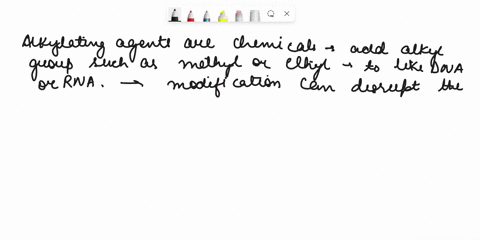 Alkylating agents are chemicals → add alkyl
group such as methyl or elkyl → to like DNA
or RNA. → modification can disrupt the